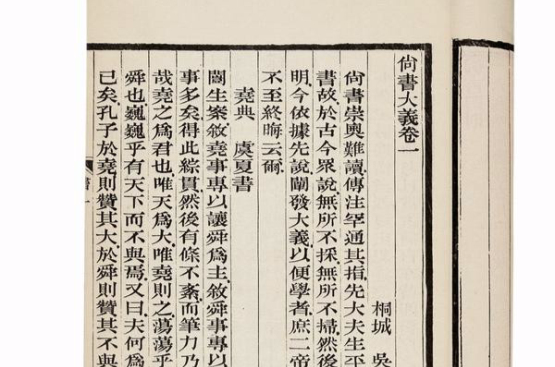 尚書大義卷一
桐城 吳
尚書崇奧難讀傳注罕通其指先大夫生平
書故於古今眾說無所不採無所不掃然後
明今依據先說闡發大義以便學者庶二帝
不至終晦云爾
堯典 虞夏書
闓生案敘堯事專以讓舜爲主敘舜事專以
事多矣得此綜貫然後有條不紊而筆力乃
哉堯之爲君也唯天爲大唯堯則之蕩蕩乎
舜也巍巍乎有天下而不與焉又曰夫何爲
已矣孔子於堯則贊其大於舜則贊其不與